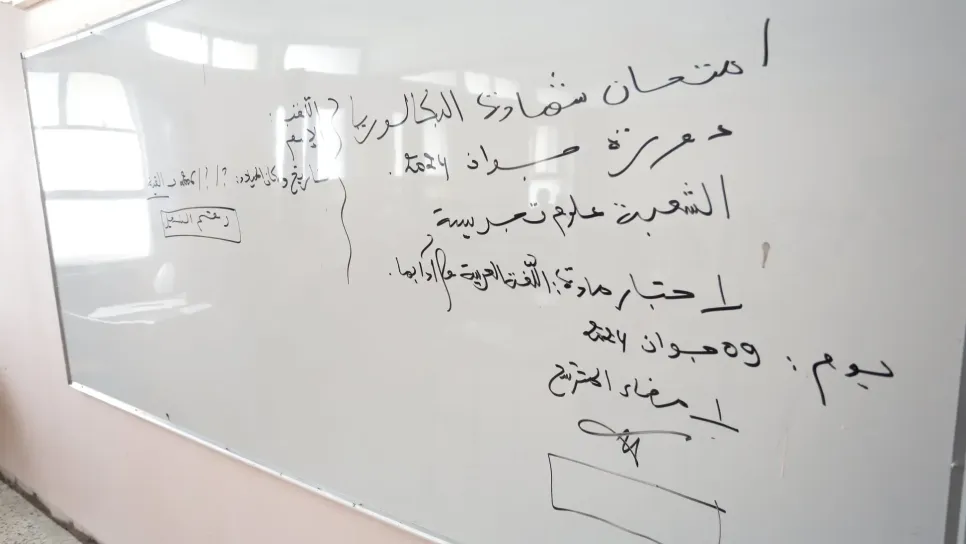 امتحان شهادة البكالوريا
دورة جوان 2024.
الشعبة علوم تجريبية
اختبار مادة: اللغة العربية وآدابها.
يوم: 09 جوان 2024
إمضاء المترشح
اللقب:
الإسم
تاريخ ومكان الميلاد: ؟/؟/
رقم التسجيل